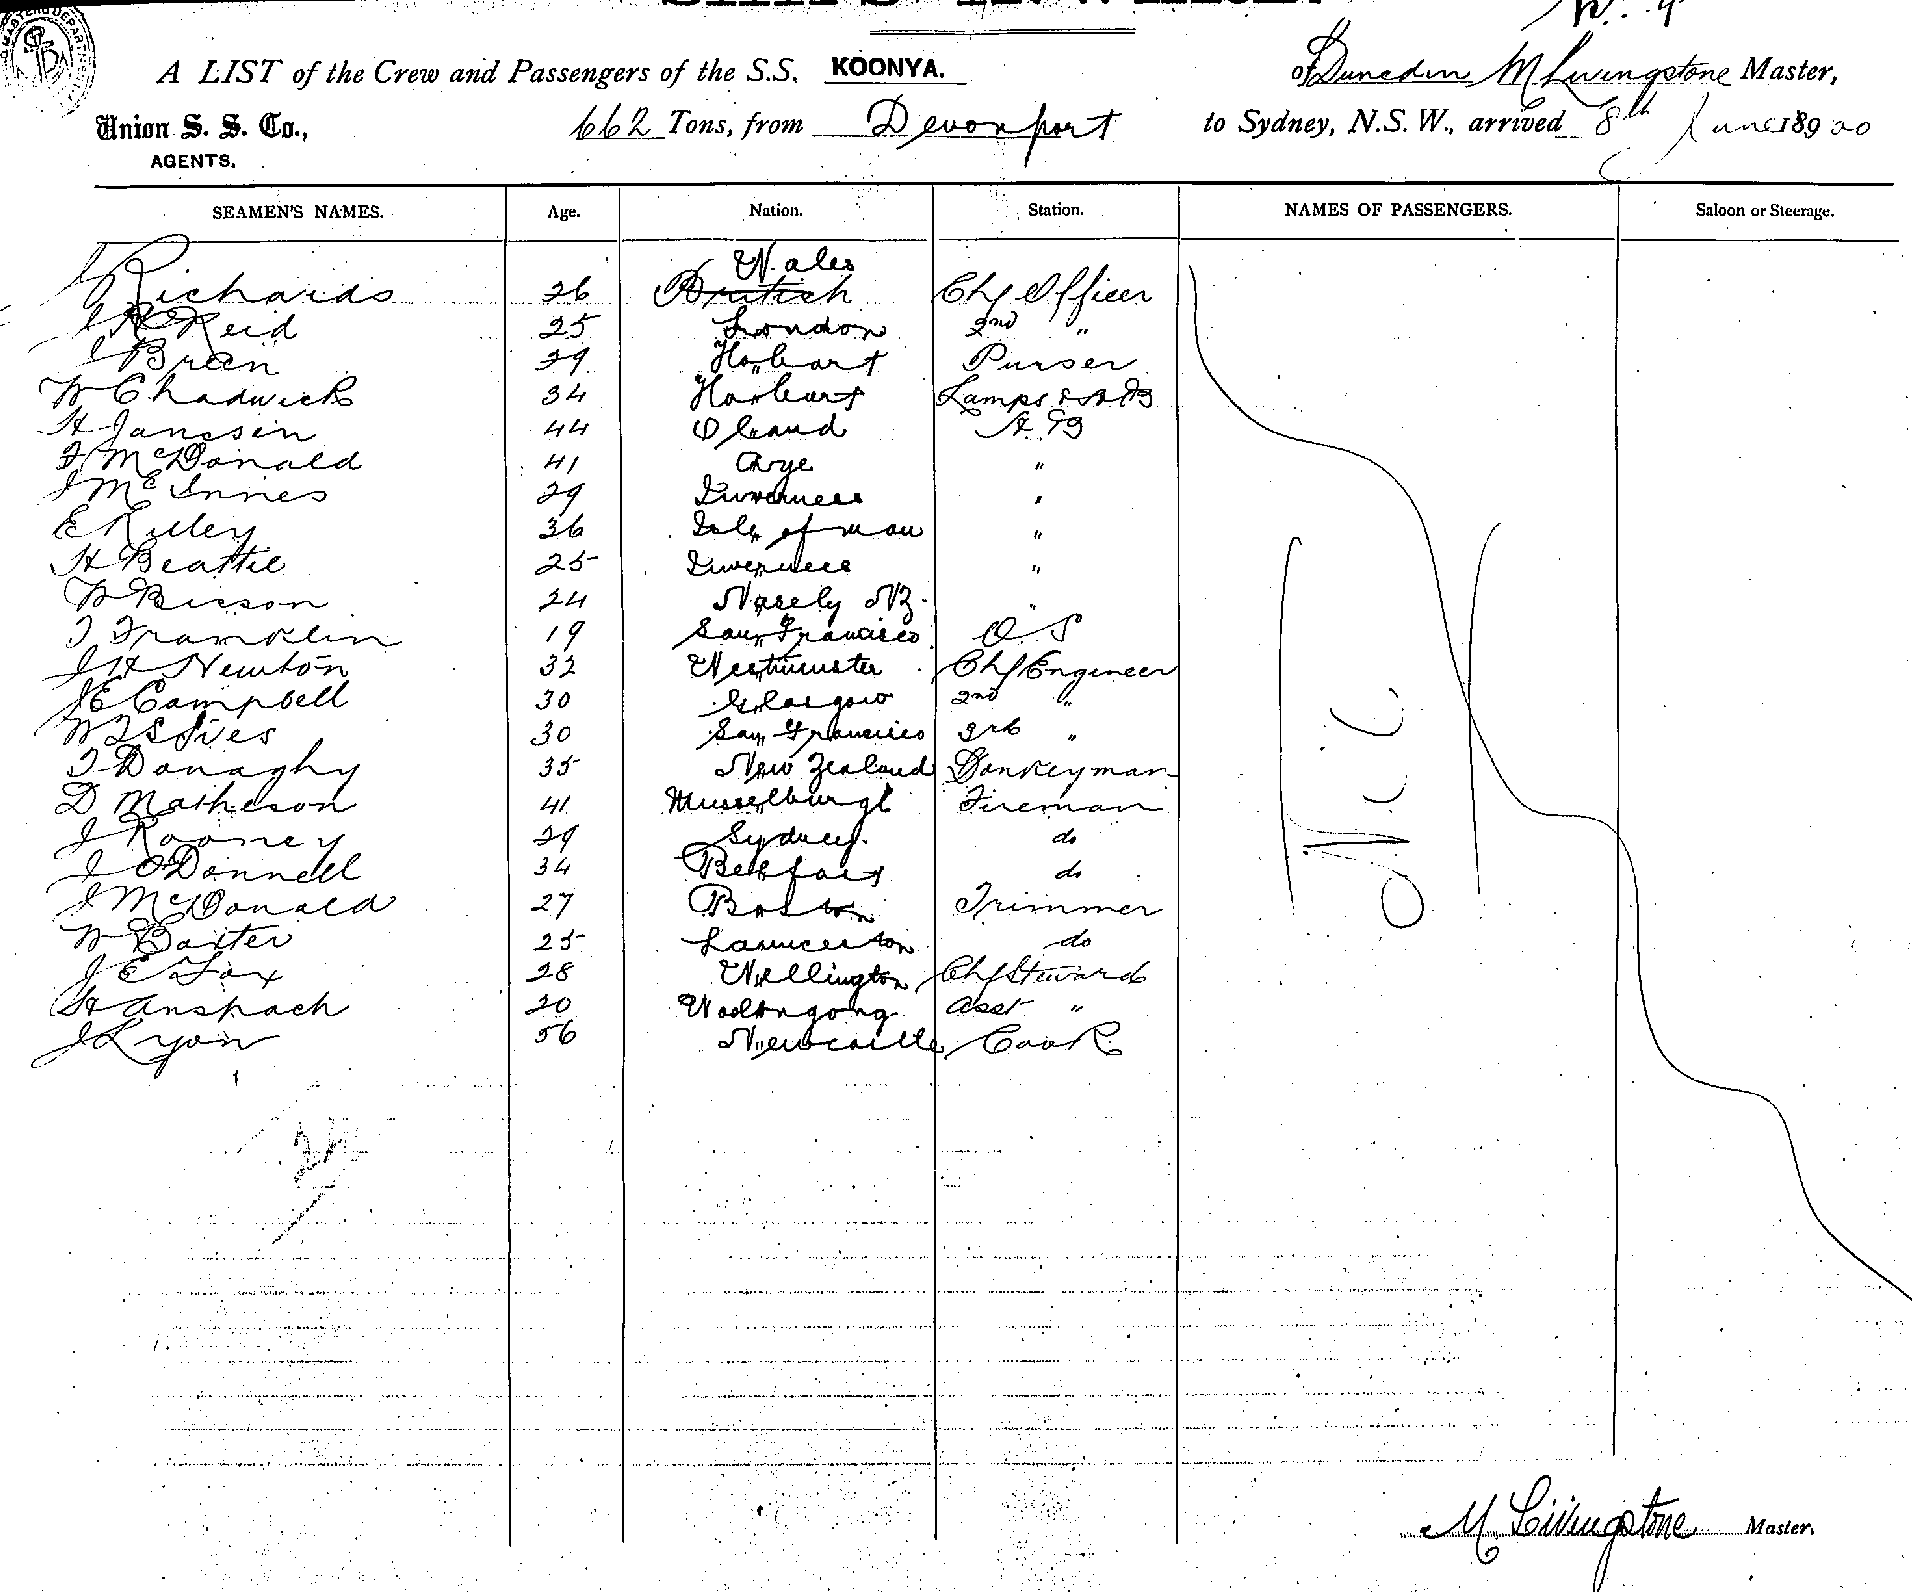 A LIST of the Crew and Passengers of the S.S. KOONYA. of Dunedin M Livingstone Master,
Union S. S. Co., 662 Tons, from Devonport to Sydney, N.S.W., arrived 8th June 18900
AGENTS.
SEAMEN'S NAMES. Age. Nation. Station. NAMES OF PASSENGERS. Saloon or Steerage.
Wales
J Richards 26 British Chf Officer
Reid 25 London 2nd "
J Breen 29 Hobart Purser
W Chadwick 34 Hobart Lamps & AB
H Janssin 44 Oland A B
F McDonald 41 Arye "
J McInnes 29 Inverness "
E Killey 36 Isle of man "
H Beattie 25 Inverness "
W Bisson 24 NZ. "
T Franklin 19 San Francisco O S
J H Newton 32 Westminster Chf Engineer
J E Campbell 30 Glasgow 2nd "
W 30 San Francisco 3rd "
T Donaghy 35 New Zealand Donkeyman
D Matheson 41 Musselburgh Fireman
J Rooney 29 Sydney. do
J ODonnell 34 Belfast do
J McDonald 27 Boston Trimmer
W Baxter 25 Launceston do
J E Fox 28 Wellington Chf Steward
H Anspach 20 Woolongong Asst "
J Lyon 56 Newcastle Cook
24
M Livingstone Master.